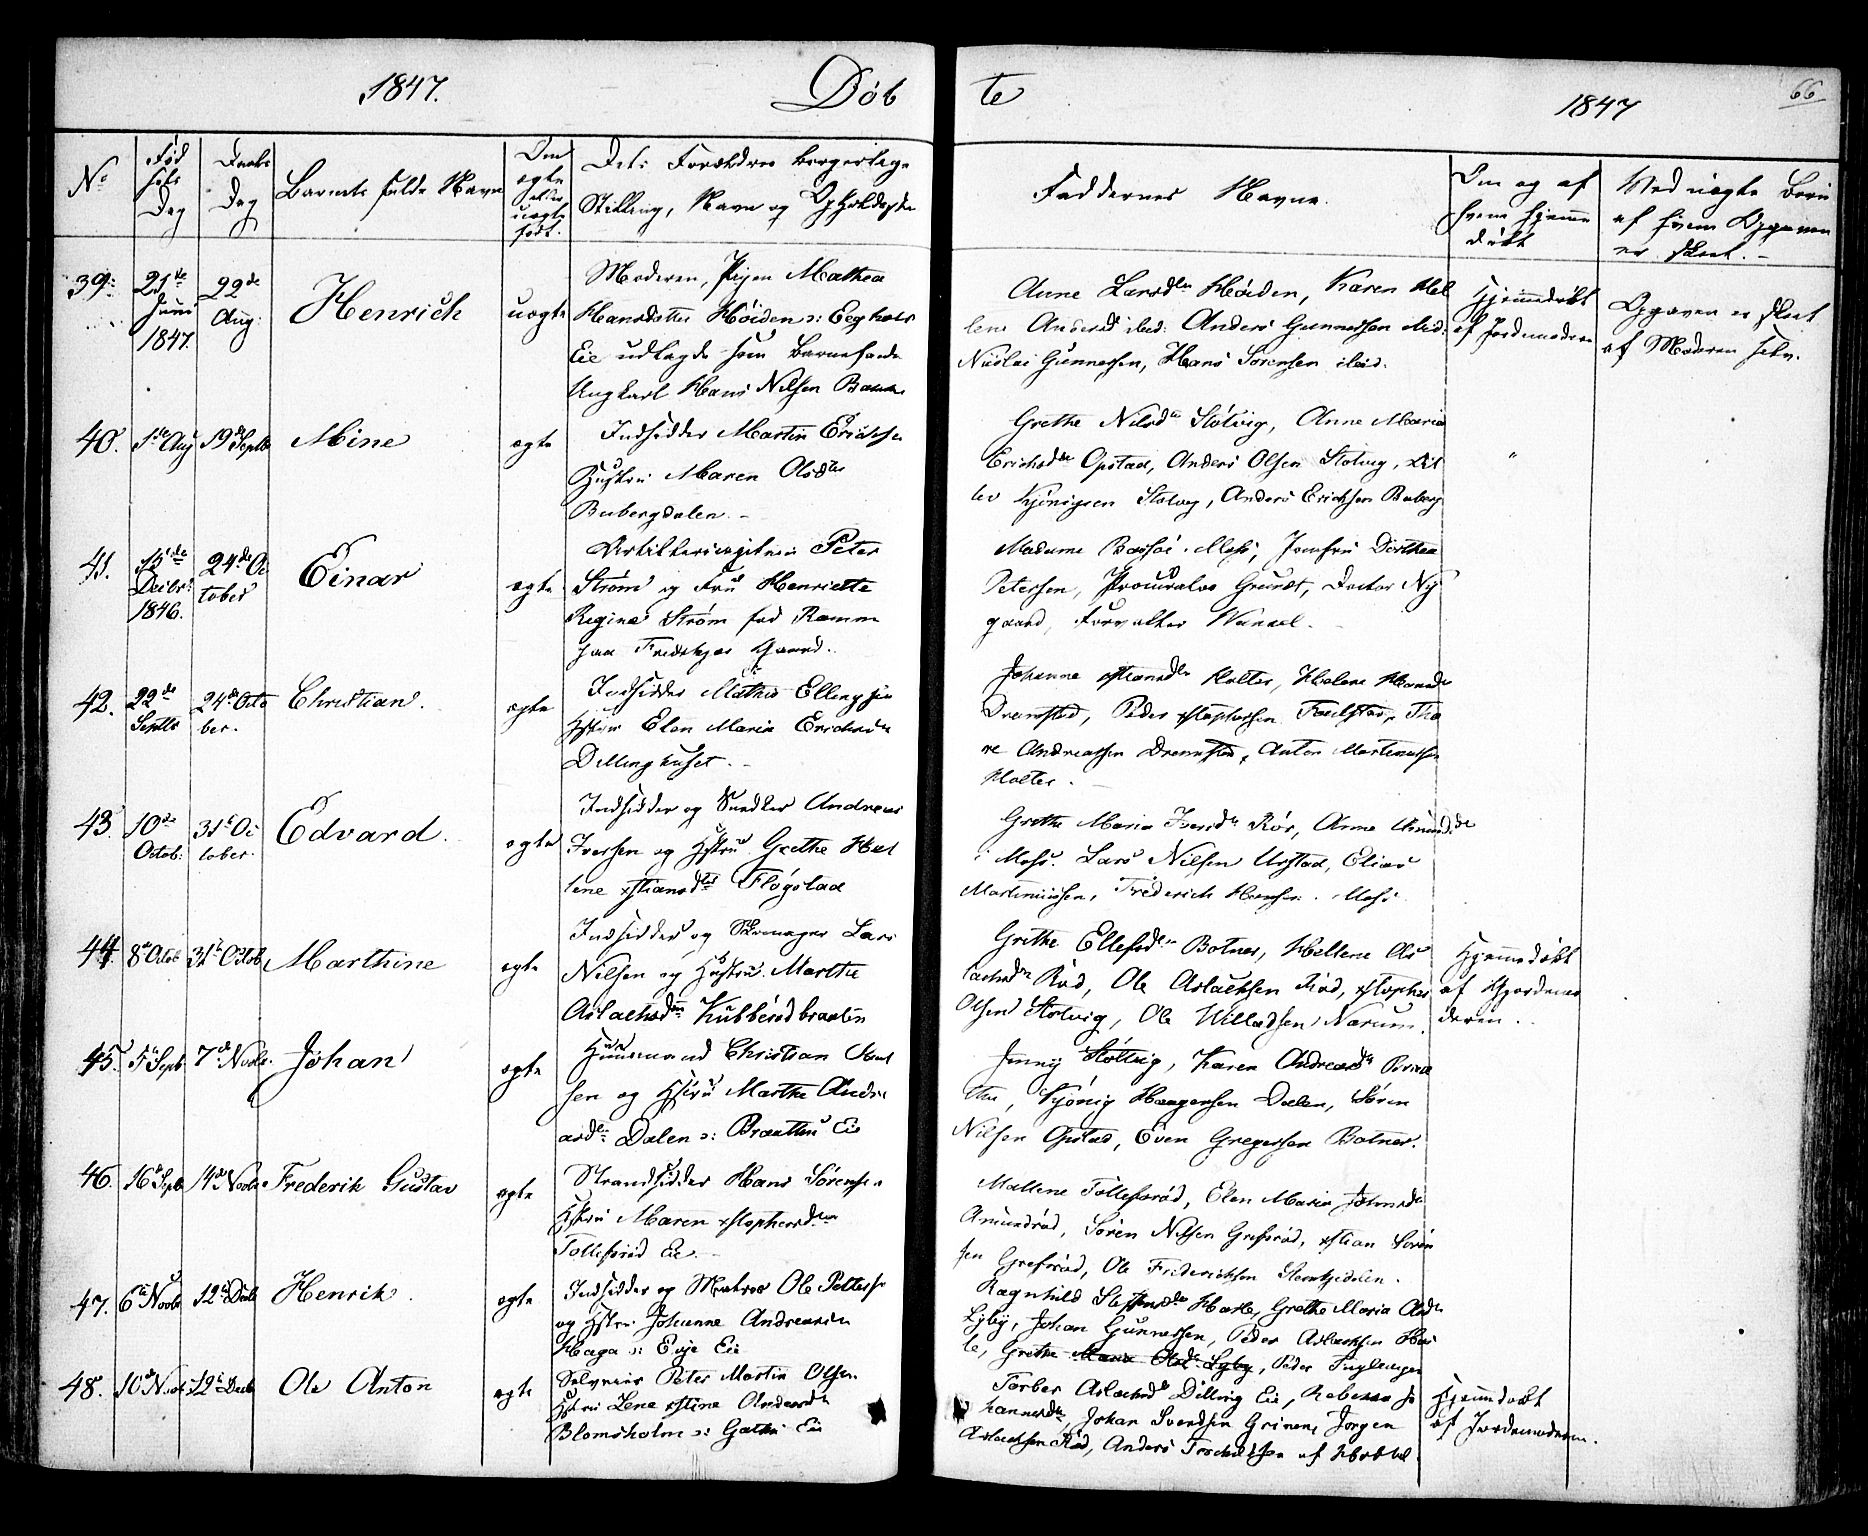 1847.
Døb
te
1847
66
No
Fød
sels
Dag
Daabs
Dag
Barnets fulde Navn
Om
ægte
eller
uægte
født.
Dets Forældres borgerlige
Stilling, Navn og Opholdssted
Faddernes Navne.
Om og af
hvem hjemme
døbt
Ved uægte Børn
af hvem Opgaven
er skeet.
39.
21de
Juni
1847.
22de
Aug.
Henrich
uægte
Moderen, Pigen Mathea
Hansdatter Höiden
Eie udlagde som Barnefader
Ungkarl Hans Nilsen
Anne Larsdtr Höiden, Karen Hel
lene Andersd ibid. Anders Gunnersen ibid.
Nicolai Gunnersen, Hans Sorensen ibid.
Hjemmedøbt
af Jordemoderen
Opgaven er skeet
af Moderen selv.
40.
1ste Aug
19de Septb
Mine
ægte
Indsidder Martin Erichsen
Hustru Maren Olsdtr
Bubergdalen.
Grethe Nilsdtr Stötvig, Anne Maria
Erichsdtr Opstad, Anders Olsen Stotvig, Dit
lev Kjönigsen Stotvig, Anders Erichsen Buberg
"
41.
15de
Decbr:
1846.
24de Oc
tober
Einar
ægte
Artillericapitain Peter
Ström og Fru Henriette
Regine Strøm fød Ramm
paa Gaard.
Madame Moss, Jomfru Dorthea
Petersen, Procurator Doctor Ny
gaard, Forvalter
42.
22de
Septbr
24de Octo
ber.
Christian.
ægte
Indsidder Mathis Ellingsen
Hstru Elen Maria Erichsdtr
Dillinghuset.
Johanne xstiansdtr Molter, Helene Hansdtr
Dramstad, Peder xstophersen Tho
re Andreassen Dramstad, Anton Martinussen
Molter.
43
10de
Octob:
31te Oc
tober.
Edvard.
ægte
Indsidder og Snedker Andreas
Iversen og Hstru Grethe Hel
lene xstiansdtr Flögstad
Grethe Maria Iversdtr Rör, Anne Amundsdtr
i Moss. Lars Nilsen Urstad, Elias
Martiniussen, Frederich Hansen. Moss
44
8de Octob
31te Octob
Marthine
ægte
Indsidder og Skomager Lars
Nilsen og Hustru Marthe
Aslachsdtr Kubberödbraaten
Grethe Ellefsdtr Botner, Hellene As
lachsdtr Röd, Ole Aslachsen Röd, xstopher
Olsen Stotvig, Ole Willadsen Narum.
Hjemmedøbt
af Gjordemo
deren.
45.
5te Septb
7de Novbr.
Johan
ægte
Huusmand Christian
sen og Hstru Marthe Andre
asdtr Dalen Braaten Eie
Jenny Stöttvig, Karen Andreasdtr Braa
ten, Kjönig Haagensen Dalen, Sören
Nilsen Opstad, Even Gregersen Botner.
46.
16de Septb
14de Novbr
Frederik Gustav
ægte
Strandsidder Hans Sörensen
Hstru Maren xstophersdtr
Tollefsröd Eie.
Mallene Tollefsröd, Elen Maria Johnsdtr
Amundröd, Sören Nilsen Grefsröd, xstian Sören
sen Grefsröd, Ole Friderichsen
47.
6te Novbr
12te Decbr
Henrik.
ægte
Indsidder og Matros Ole Pettersen
og Hstru Johanne Andreasdtr
Haga Evje Eie
Ragnhild Steffensdtr Grethe Maria Olsdtr
Lyby, Johan Gunnersen, Peder Aslachsen
Grethe Maria Olsdtr Lyby, Peder
48.
10de Novbr
12te Decbr
Ole Anton
ægte
Selveier Peter Martin Olsen
Hstru Lene xstine Andersdtr
Blomsholm Eie
Torber Aslachsdtr Dilling Eie, Rebecca Jo
hannesdtr, Johan Svendsen Grinen, Jörgen
Aslachsen Röd, Anders
Hjemmedøbt
af Jordemoderen.